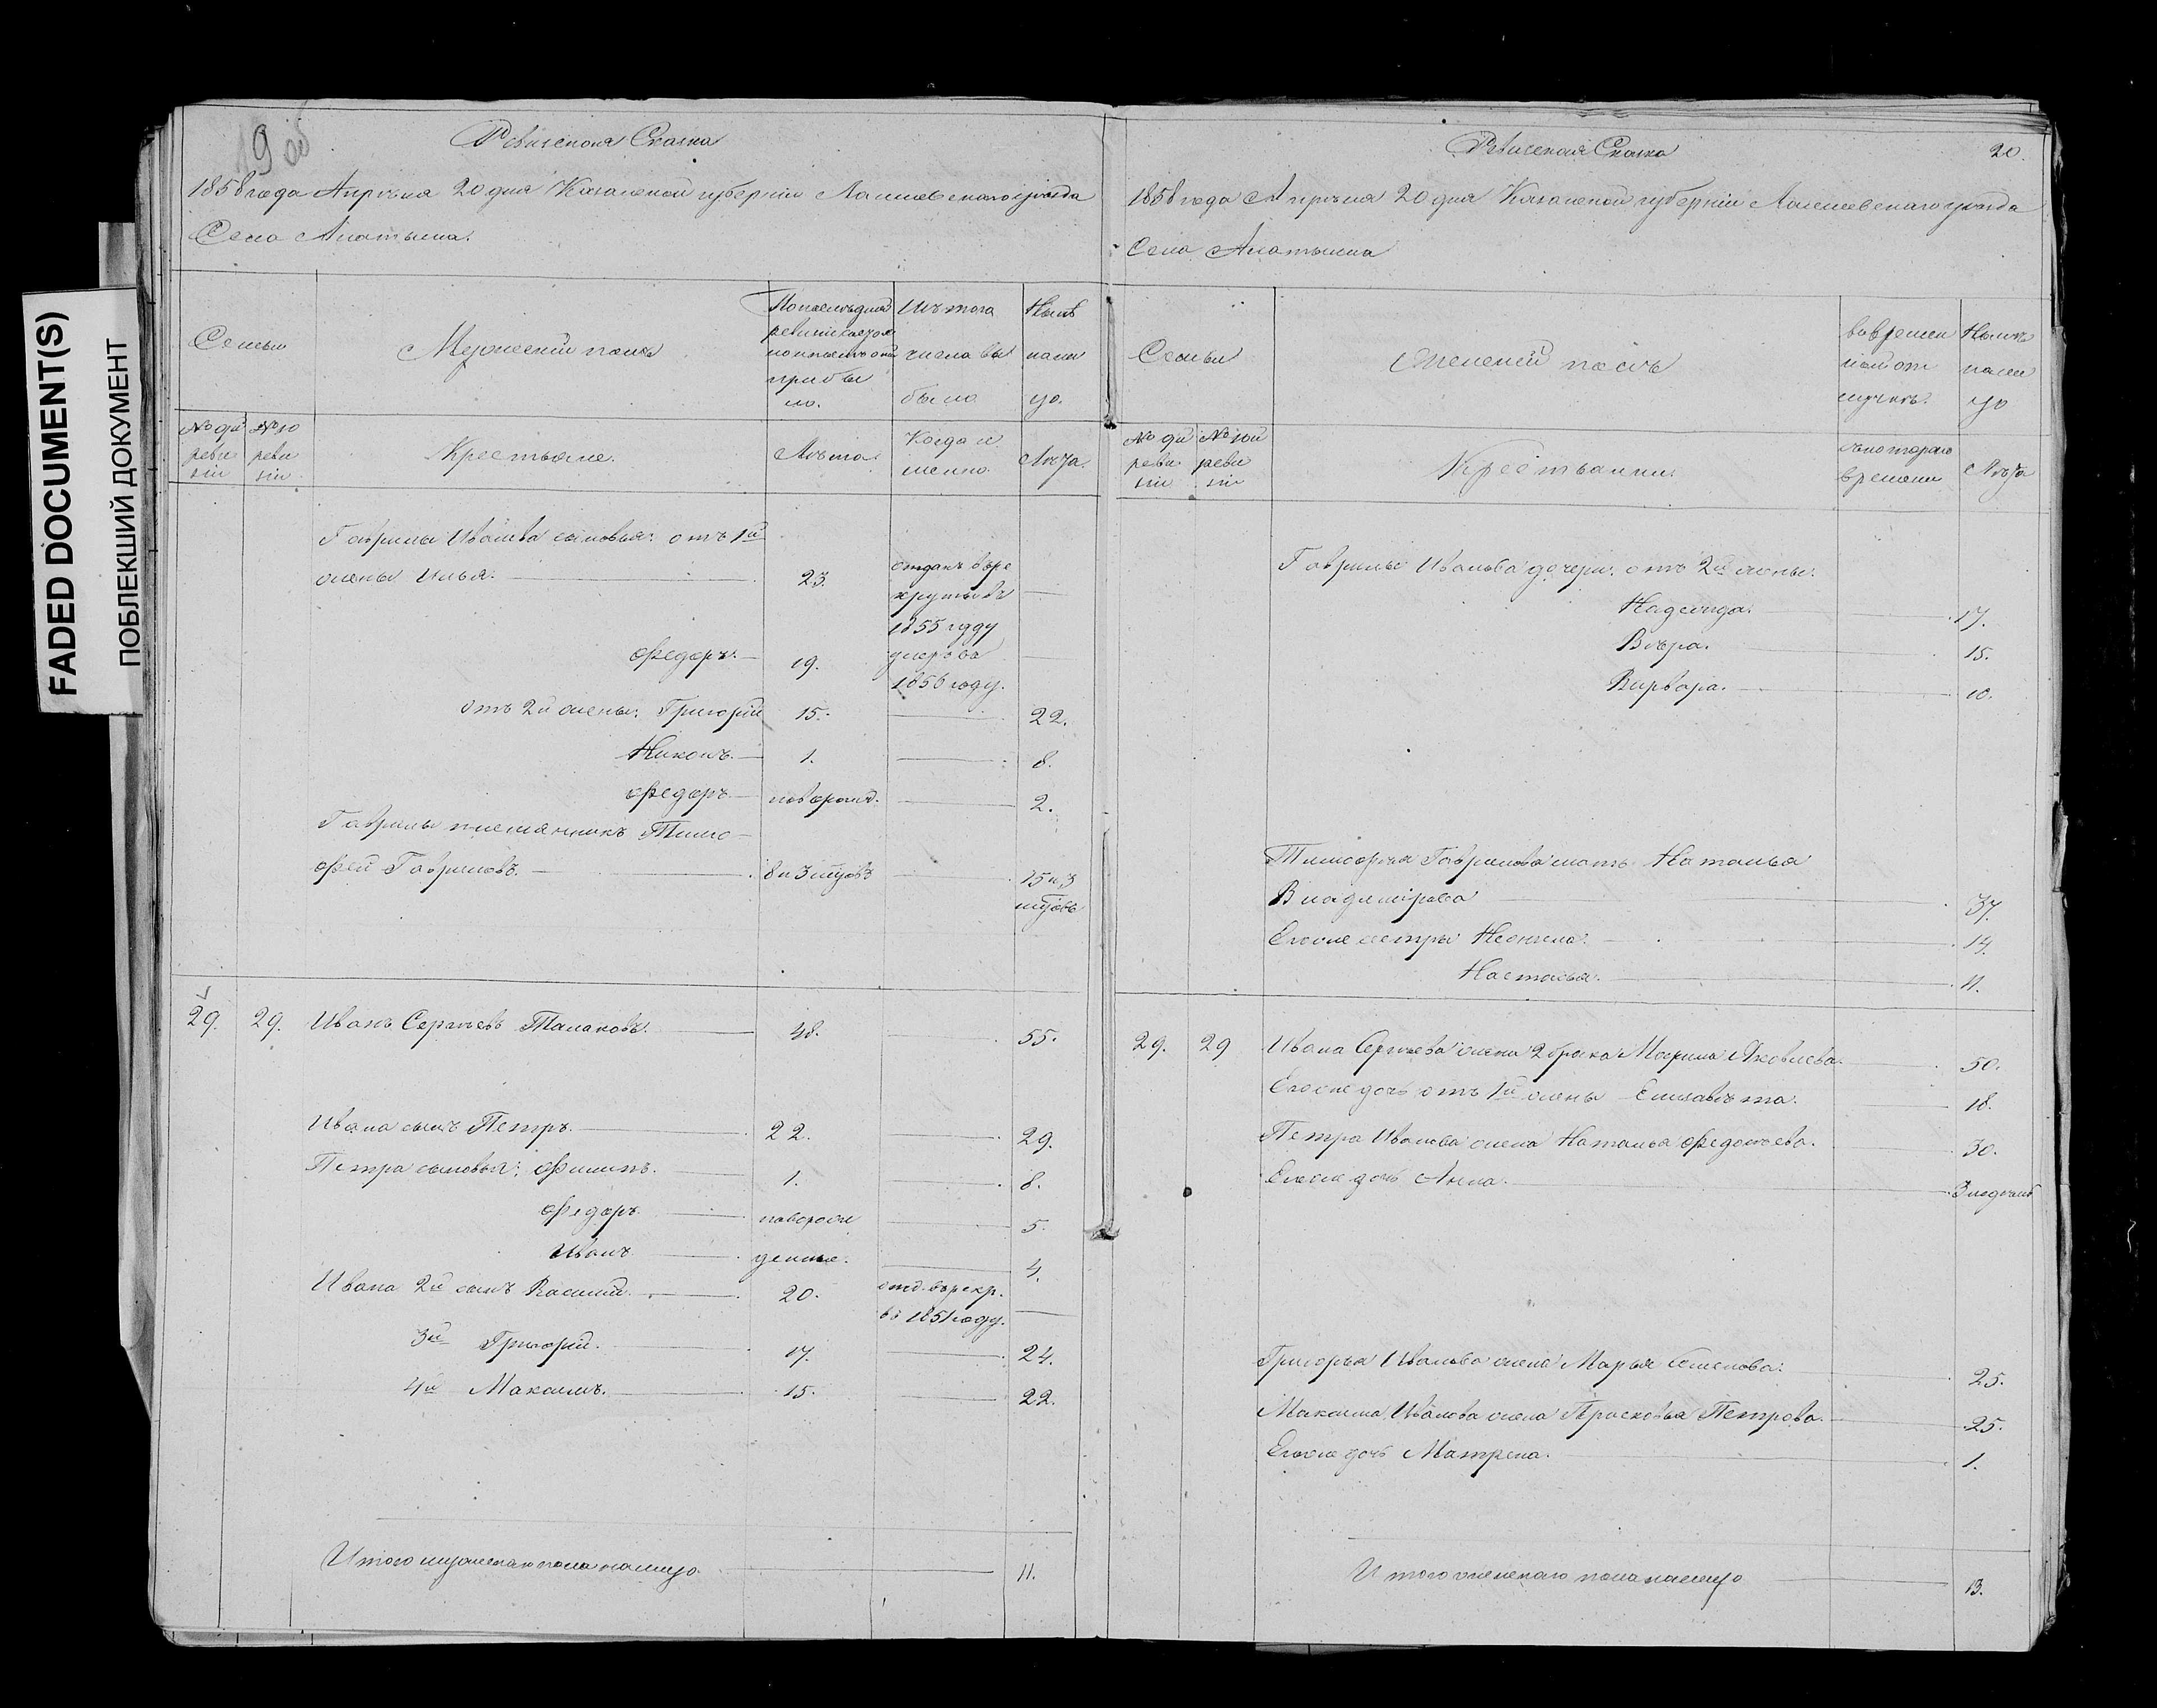 FADED DOCUMENT(S)
ПОБЛЕКШИЙ ДОКУМЕНТ
19 об
Ревизская Сказка
1858 года Апреля 20 дня Казанской губернии Лаишевскаго уезда
Села
Семьи
Мужеский полъ
По последней
ревизии состоя
ло и после оной
прибы
ло.
Изъ того
числа вы
было
Ныне
нали
цо.
№ 9й
реви
зiи
№ 10
реви
зiи
Крестьяне.
Лета.
Когда и
менно
Лета.
Гаврилы Иванова сыновья: отъ 1й
жены Илья.
23.
отданъ въ ре
круты въ
1855 году
Федоръ.
19.
умеръ въ
1856 году.
отъ 2й жены: Григорий
15.
22.
Никонъ.
1.
8.
Федоръ
новорожд.
2.
Гаврилы племянникъ Тимо-
фей Гавриловъ.
8 и 3 мцовъ
15 и 3
мцовъ
29.
29.
Иванъ Сергеевъ Талановъ.
48.
55.
Ивана сынъ Петръ.
22.
29.
Петра сыновья: Филипъ.
1.
8.
Федоръ
новорож
5.
Иванъ
денные.
4.
Ивана 2й сынъ Василий.
20.
отд. въ рекр.
въ 1851 году.
3й Григорий.
17.
24.
4й Максимъ.
15.
22.
Итого мужескаго пола налицо.
11.
Ревизская Сказка
20.
1858 года Апреля 20 дня Казанской губернии Лаишевскаго уезда
Села
Семьи
Женский полъ
во времен
ной от
лучке.
Ныне
нали
цо
№ 9й
реви
зiи
№ 10й
реви
зiи
Крестьянки.
съ котораго
времени
Лета
Гаврилы Иванова дочери: отъ 2й жены:
Надежда.
17.
Вѣра.
15.
Варвара.
10.
Тимофея Гаврилова мать Наталья
Владимірова
37.
Его же сестры Неонила.
14.
Настасья.
11.
29.
29
Ивана Сергеева жена 2 брака Марина Яковлева.
50.
Его же дочь отъ 1й жены Елизавѣта.
18.
Петра Иванова жена Наталья Федотьева.
30.
Его же дочь Анна.
3 недель
Григорья Иванова жена Марья Семенова.
25.
Максима Иванова жена Прасковья Петрова.
25.
Его же дочь Матрена.
1.
Итого женскаго пола налицо
13.